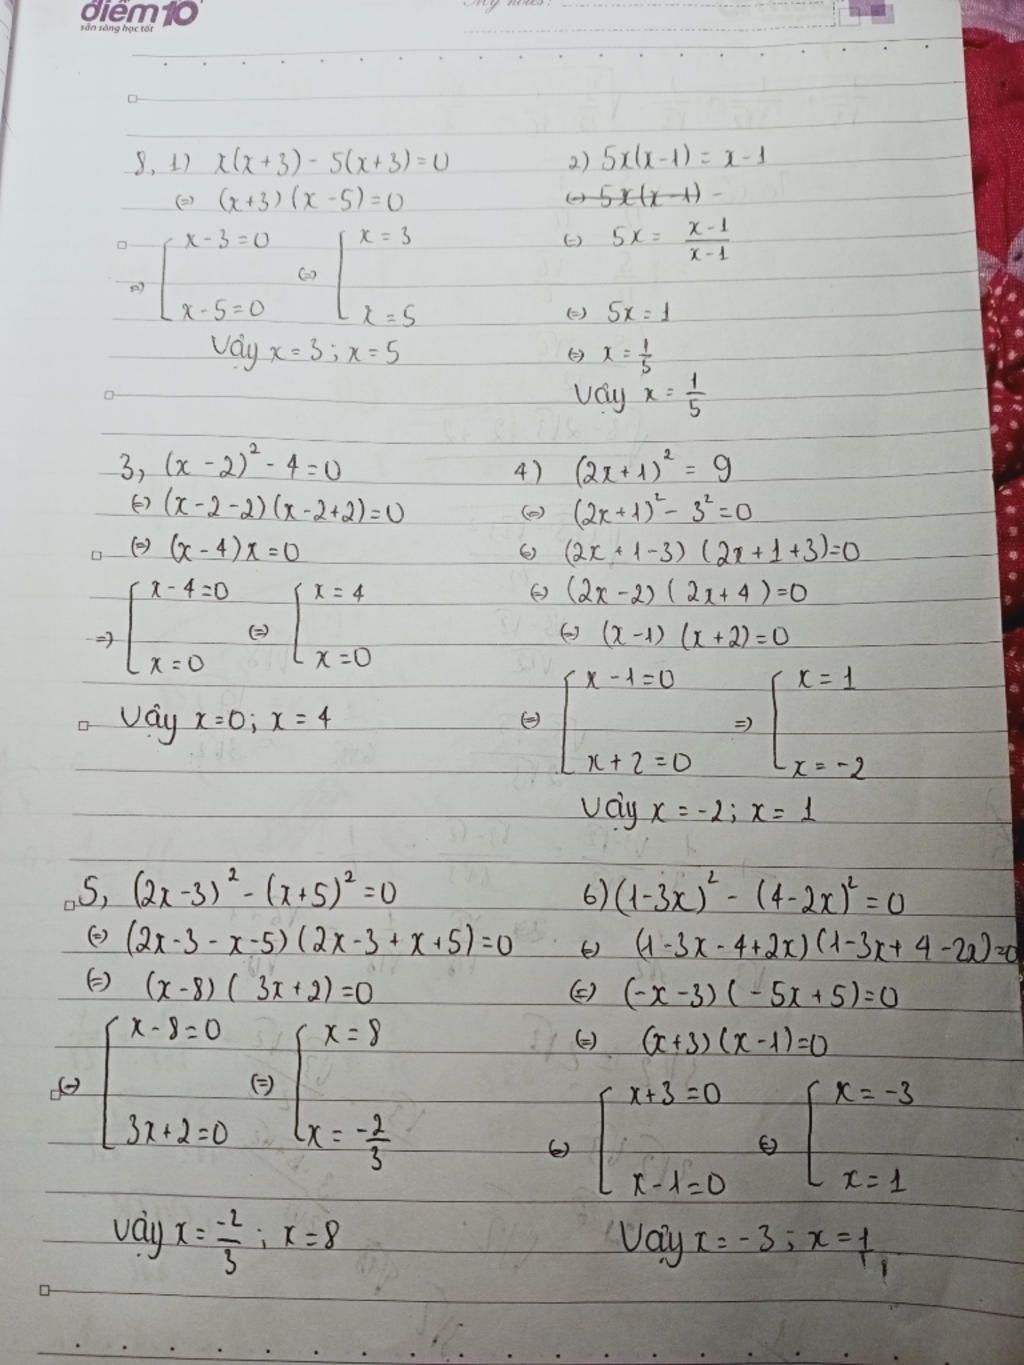 điểm10
sẵn sàng học tốt
My notes:
8, 1) x(x+3) - 5(x+3) = 0
(=) (x+3)(x-5) = 0
=) [ x-3=0 (=) [ x = 3
x-5=0 x = 5
Vậy x = 3 ; x = 5
2) 5x(x-1) = x-1
(=) 5x(x-1) -
(=) 5x = \frac{x-1}{x-1}
(=) 5x = 1
(=) x = \frac{1}{5}
Vậy x = \frac{1}{5}
3, (x-2)² - 4 = 0
(=) (x-2-2)(x-2+2) = 0
(=) (x-4)x = 0
=) [ x-4=0 (=) [ x = 4
x = 0 x = 0
Vậy x = 0; x = 4
4) (2x+1)² = 9
(=) (2x+1)² - 3² = 0
(=) (2x+1-3)(2x+1+3) = 0
(=) (2x-2)(2x+4) = 0
(=) (x-1)(x+2) = 0
(=) [ x-1=0 =) [ x = 1
x+2=0 x = -2
Vậy x = -2; x = 1
5, (2x-3)² - (x+5)² = 0
(=) (2x-3-x-5)(2x-3+x+5) = 0
(=) (x-8)(3x+2) = 0
(=) [ x-8=0 (=) [ x = 8
3x+2=0 x = \frac{-2}{3}
Vậy x = \frac{-2}{3} ; x = 8
6) (1-3x)² - (4-2x)² = 0
(=) (1-3x-4+2x)(1-3x+4-2x) = 0
(=) (-x-3)(-5x+5) = 0
(=) (x+3)(x-1) = 0
(=) [ x+3=0 (=) [ x = -3
x-1=0 x = 1
Vậy x = -3 ; x = 1